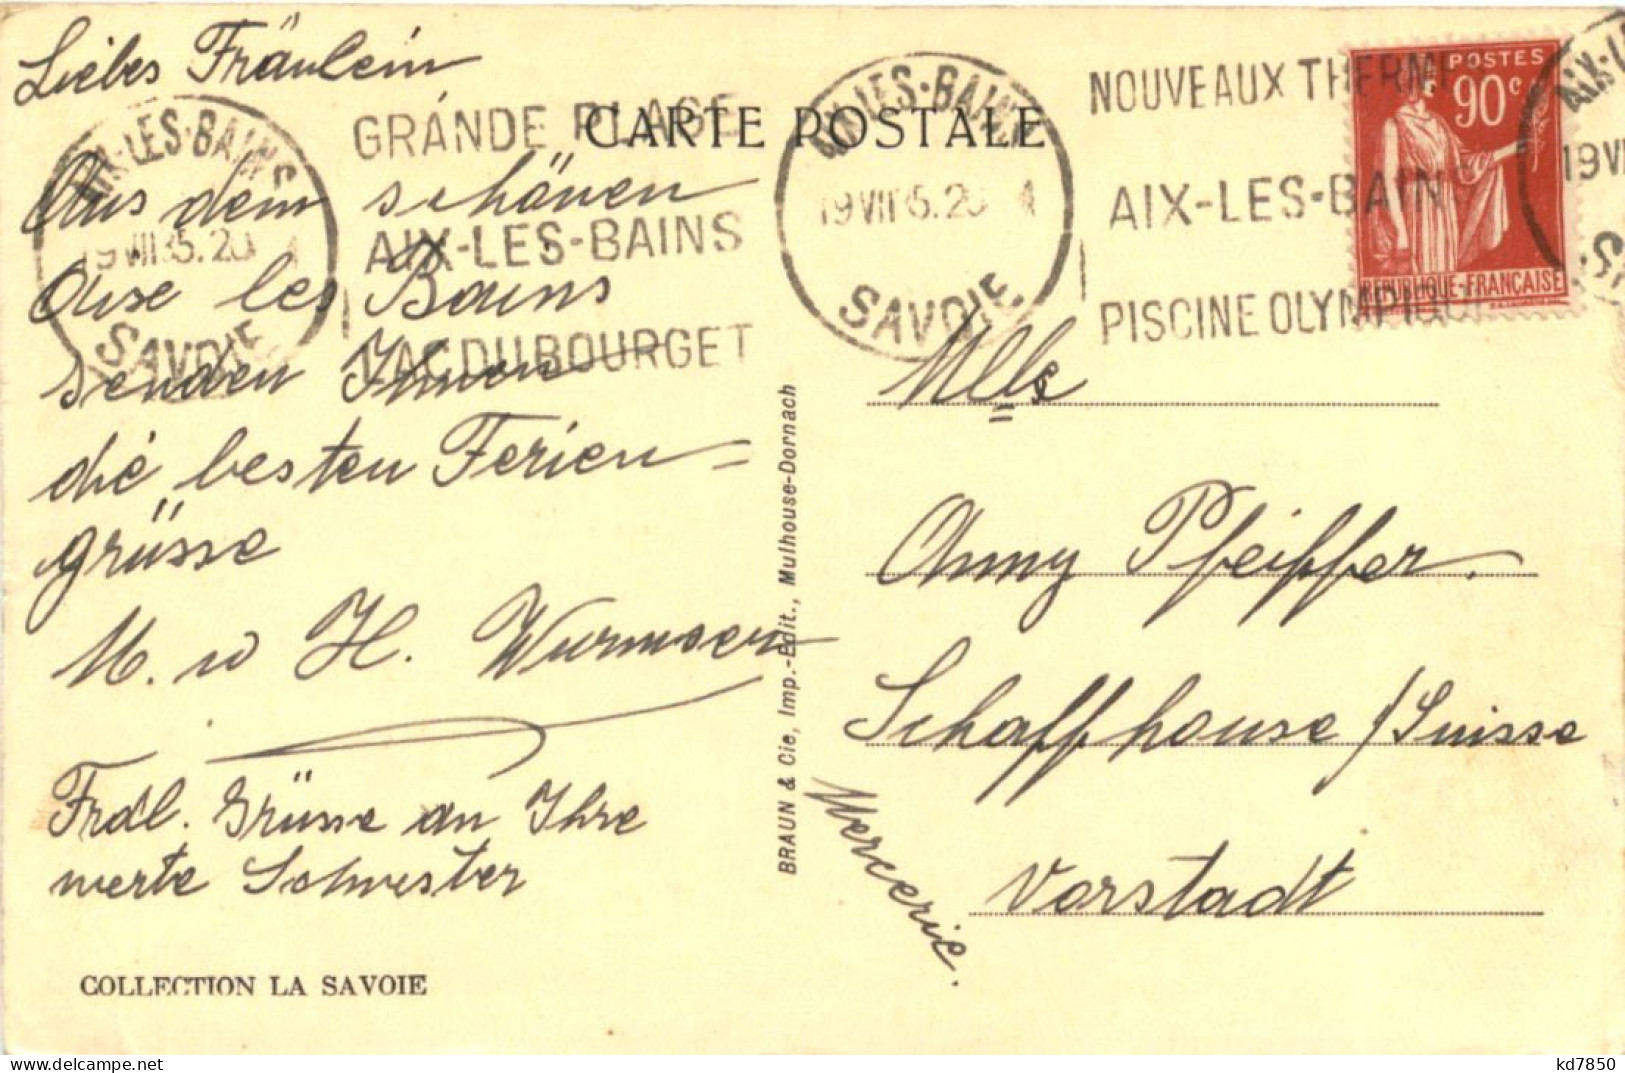 Liebes Fräulein
Aus dem schönen
Aise les Bains
senden Ihnen
die besten Ferien=
grüsse
M. u H. Wurmser
Frdl. Grüsse an Ihre
werte Schwester
COLLECTION LA SAVOIE
CARTE POSTALE
AIX-LES-BAINS
19 VIII 35. 20
SAVOIE
GRANDE PLAGE
AIX-LES-BAINS
LAC DU BOURGET
AIX-LES-BAINS
SAVOIE
NOUVEAUX THERMES
AIX-LES-BAINS
PISCINE OLYMPIQUE
POSTES
90c
REPUBLIQUE-FRANÇAISE
BRAUN & Cie, Imp.-Edit., Mulhouse-Dornach
Mlle
Anny Pfeiffer.
Schaffhouse / Suisse
Mercerie.
Vorstadt
kd7850